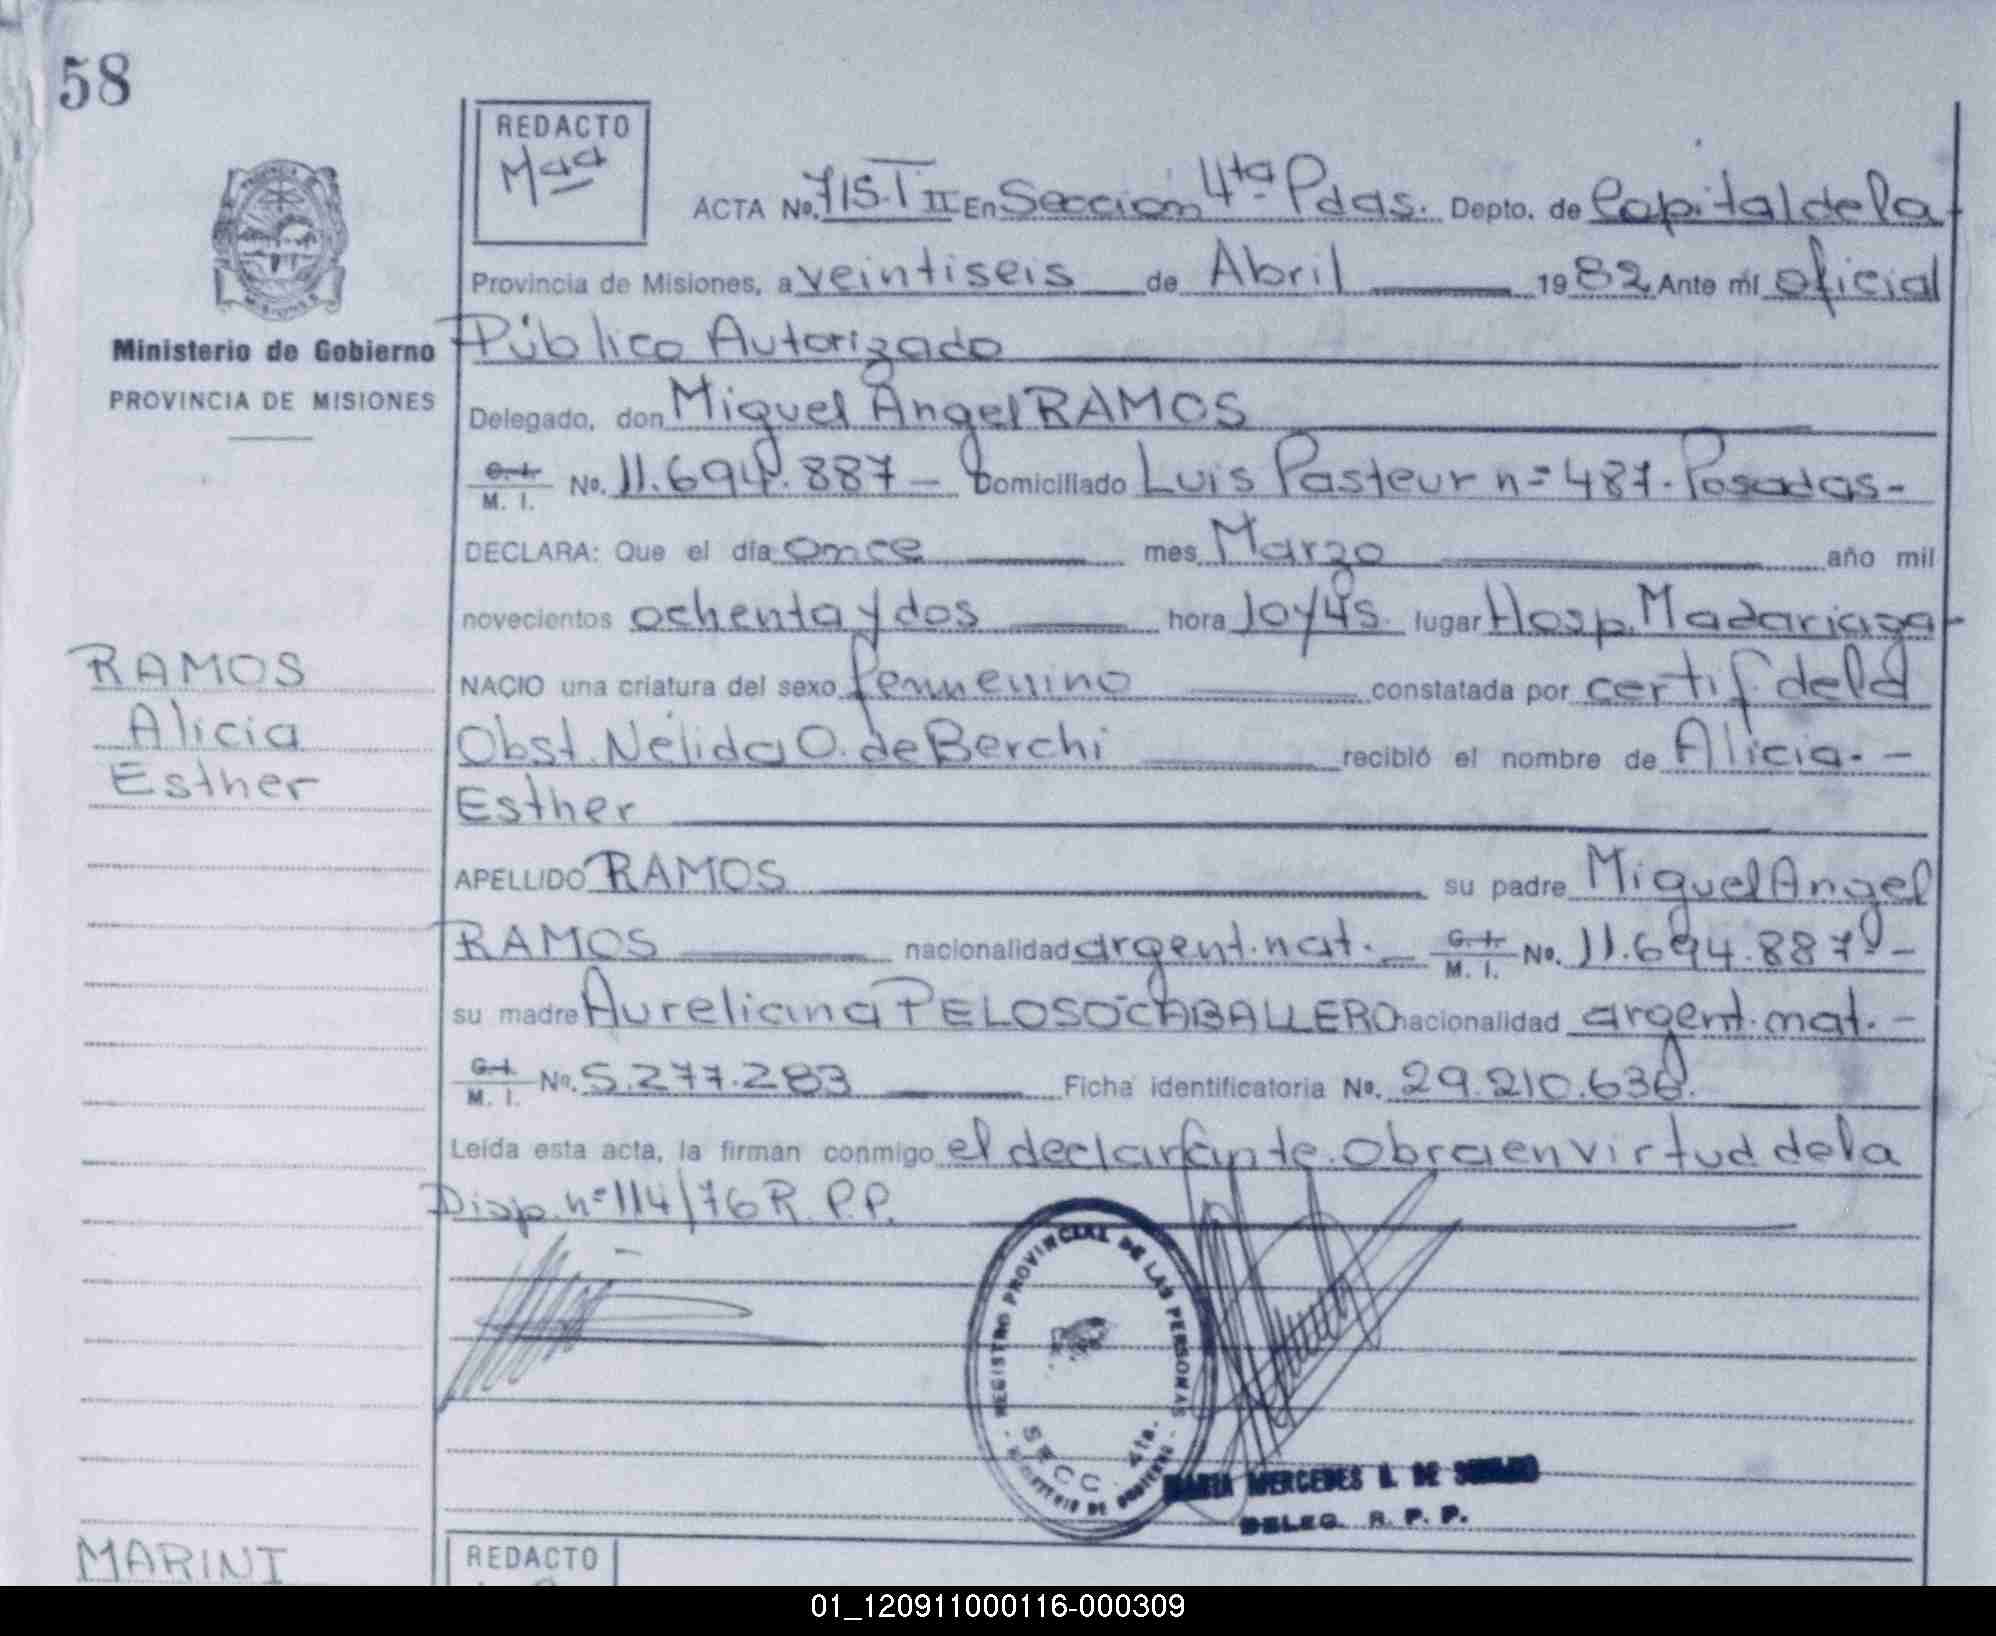 58
REDACTO
Maa
ACTA No. 715.T II En Sección 4ta Pdas. Depto. de Capital de la
Provincia de Misiones, a veintiseis de Abril 1982 Ante mí oficial
Ministerio de Gobierno
PROVINCIA DE MISIONES
Público Autorizado
Delegado, don Miguel Angel RAMOS
C. I. M. I. No. 11.694.887 - Domiciliado Luis Pasteur nº 487. Posadas-
DECLARA: Que el día once mes Marzo año mil
novecientos ochenta y dos hora 10 y 45. lugar Hosp. Madariaga-
RAMOS
Alicia
Esther
NACIO una criatura del sexo femenino constatada por certif. de la
Obst. Nélida O. de Berchi recibió el nombre de Alicia. -
Esther
APELLIDO RAMOS su padre Miguel Angel
RAMOS nacionalidad argent. nat. - C. I. M. I. No. 11.694.887 -
su madre Aureliana PELOSO CABALLERO nacionalidad argent. nat. -
C. I. M. I. No. 5.277.283 Ficha identificatoria No. 29.210.636.
Leída esta acta, la firman conmigo el declarante. Obra en virtud de la
Disp. nº 114/76 R. P.P.
REGISTRO PROVINCIAL DE LAS PERSONAS
SECC. 4ta.
MINISTERIO DE GOBIERNO
MARIA MERCEDES DE
DELEG. R. P. P.
MARINI
REDACTO
01_120911000116-000309